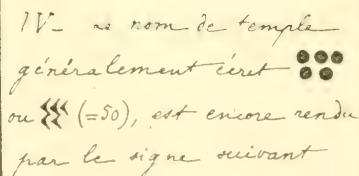 IV_ Le nom de temple
généralement écrit
ou 𒐐 (=50), est encore rendu
par le signe suivant